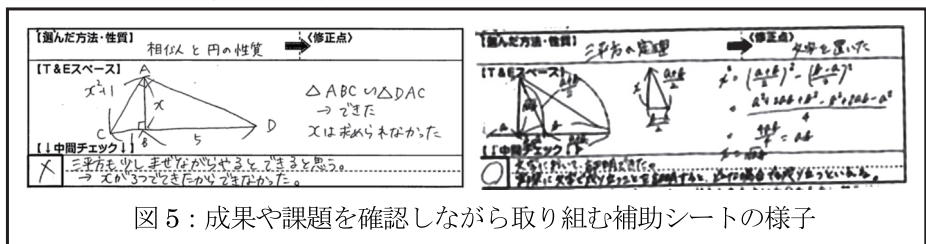 【選んだ方法・性質】
相似と円の性質
〈修正点〉
【T&Eスペース】
A
x²+1
x
C
1
B
5
D
△ABC∽△DAC
→できた
xは求められなかった
【↓中間チェック↓】
×
三平方も少しまぜながらやるとできると思う。
→xが3つでてきたからできなかった。
【選んだ方法・性質】
三平方の定理
〈修正点〉
文字を置いた
【T&Eスペース】
a
b
x
a+b/2
x² = (a+b/2)² - (b-a/2)²
4ab/4 = ab
x = √ab
【↓中間チェック↓】
○
図5:成果や課題を確認しながら取り組む補助シートの様子